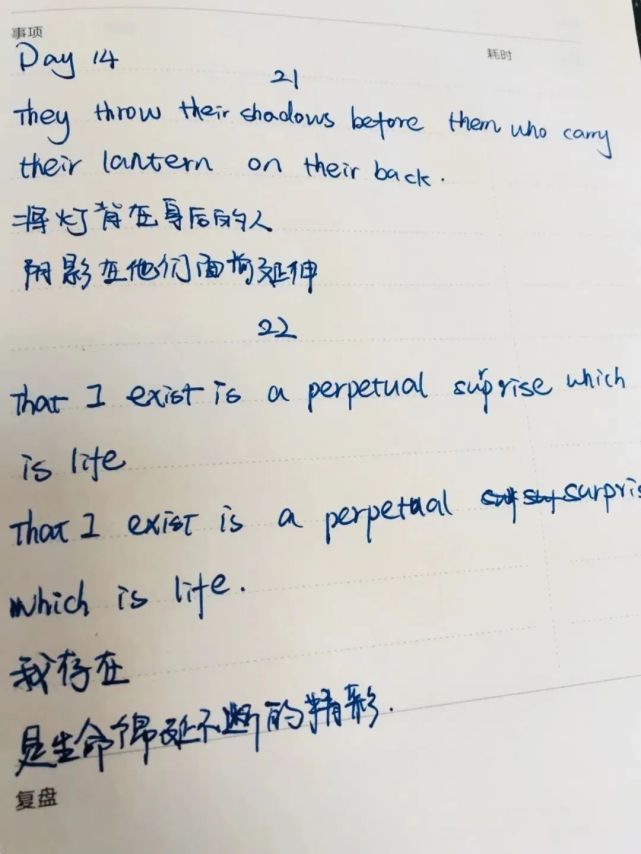 事项
耗时
Day 14
21
They throw their shadows before them who carry
their lantern on their back.
将灯背在身后的人
阴影在他们面前延伸
22
that I exist is a perpetual suprise which
is life
that I exist is a perpetual surpris
which is life.
我存在
是生命绵延不断的精彩.
复盘